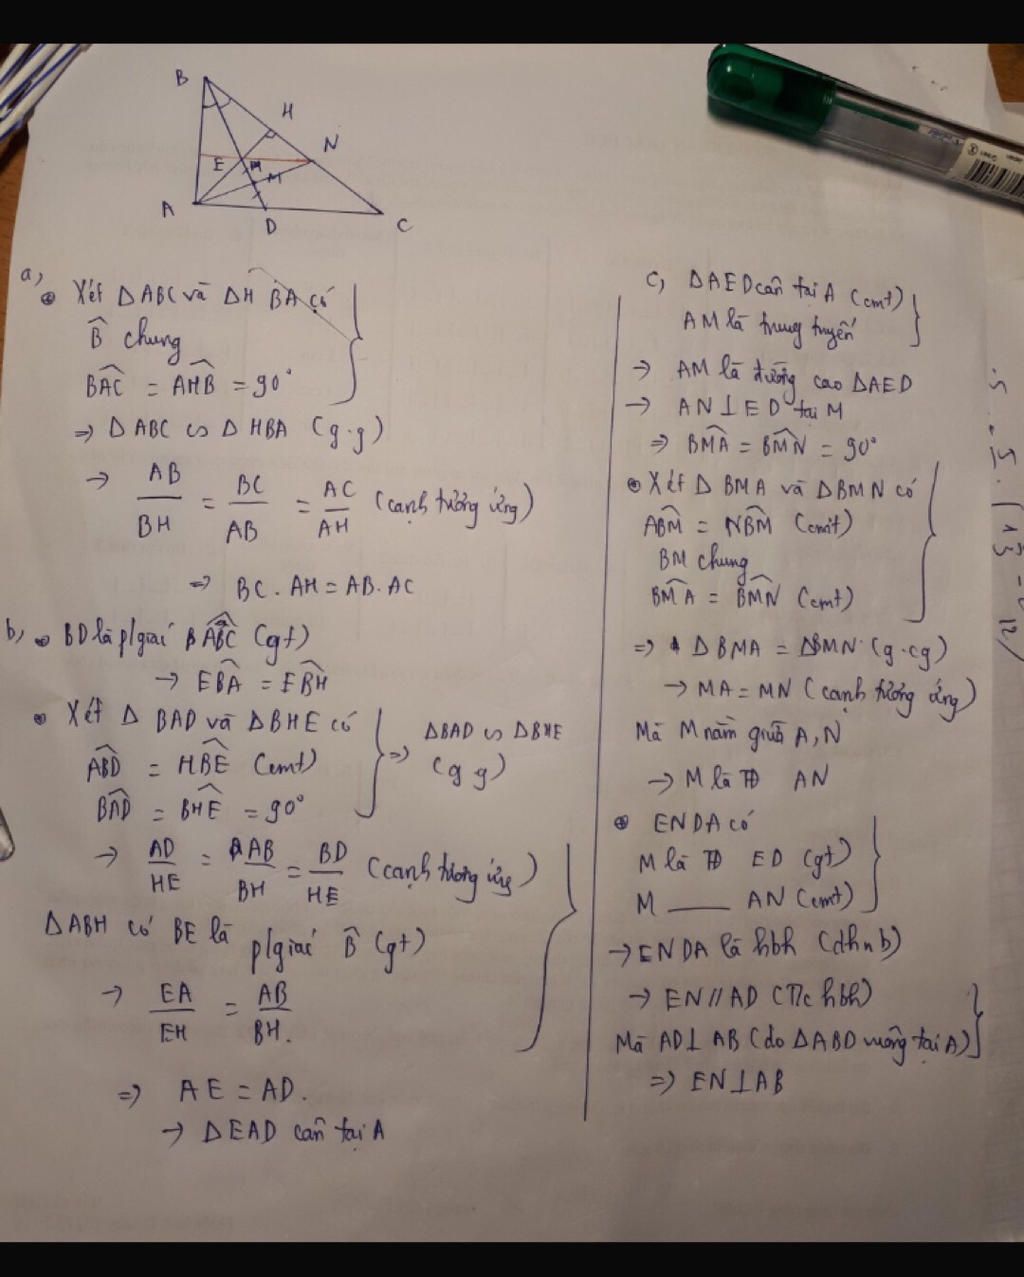 B
H
N
E
M
M
A
D
C
a,
Xét ΔABC và ΔHBA có
B̂ chung
BAC^ = AHB^ = 90°
=> ΔABC ∽ ΔHBA (g.g)
→ AB/BH = BC/AB = AC/AH (cạnh tương ứng)
=> BC.AH = AB.AC
b, BD là p/giác ABC^ (gt)
→ EBA^ = EBH^
Xét Δ BAD và ΔBHE có
ABD^ = HBE^ (cmt)
BAD^ = BHE^ = 90°
=> ΔBAD ∽ ΔBHE
(g g)
→ AD/HE = AB/BH = BD/HE (cạnh tương ứng)
ΔABH có BE là p/giác B̂ (gt)
→ EA/EH = AB/BH.
=> AE = AD.
→ ΔEAD cân tại A
c, ΔAED cân tại A (cmt)
AM là trung tuyến
→ AM là đường cao ΔAED
→ AN⊥ED tại M
=> BMA^ = BMN^ = 90°
Xét Δ BMA và ΔBMN có
ABM^ = NBM^ (cmt)
BM chung
BMA^ = BMN^ (cmt)
=> ΔBMA = ΔBMN (g.cg)
→ MA = MN (cạnh tương ứng)
Mà M nằm giữa A, N
→ M là TĐ AN
ENDA có
M là TĐ ED (gt)
M ___ AN (cmt)
→ ENDA là hbh (dhnb)
→ EN // AD (T/c hbh)
Mà AD⊥AB (do ΔABD vuông tại A)
=> EN⊥AB